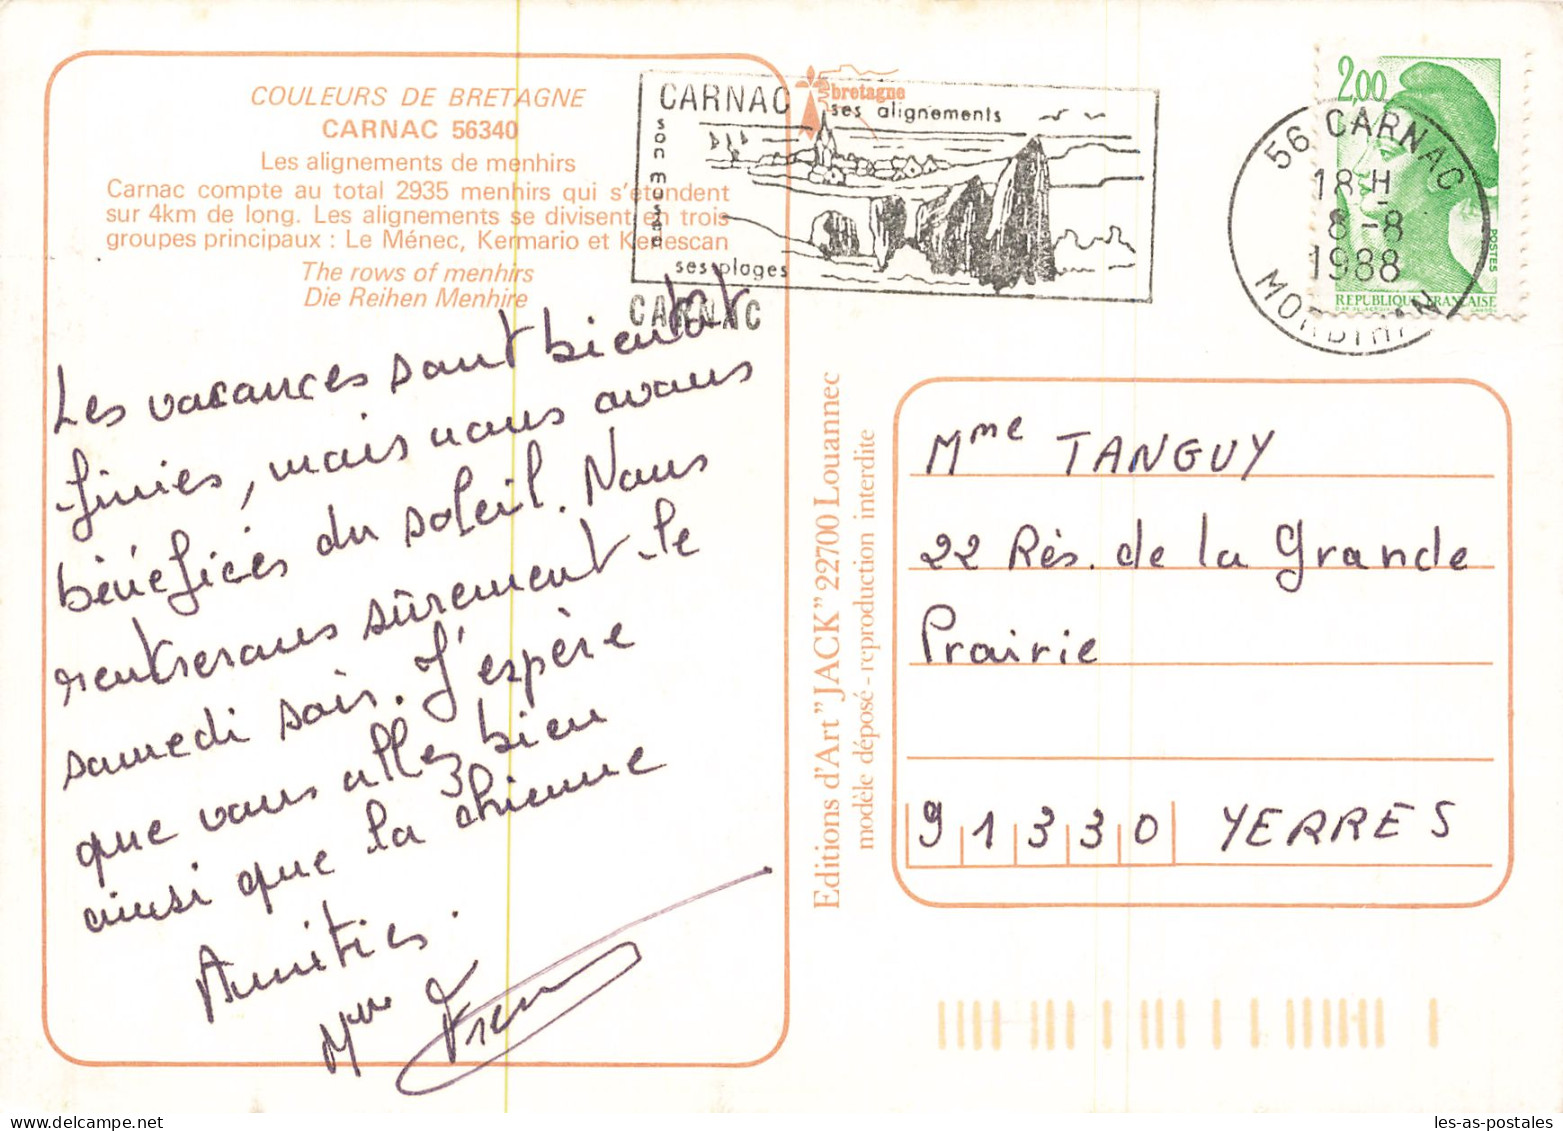 COULEURS DE BRETAGNE
CARNAC 56340
Les alignements de menhirs
Carnac compte au total 2935 menhirs qui s'étendent
sur 4km de long. Les alignements se divisent en trois
groupes principaux : Le Ménec, Kermario et Kerlescan
The rows of menhirs
Die Reihen Menhire
Les vacances sont bientôt
finies, mais nous avons
bénéficiés du soleil. Nous
rentrerons sûrement le
samedi soir. J'espère
que vous allez bien
ainsi que la chienne
Amitiés.
Mme
bretagne
CARNAC
ses alignements
son musée
ses plages
CARNAC
2,00
POSTES
REPUBLIQUE FRANÇAISE
56 CARNAC
18 H
8-8
1988
MORBIHAN
Editions d'Art "JACK" 22700 Louannec
modèle déposé - reproduction interdite
Mme TANGUY
22 Rés. de la Grande
Prairie
91330 YERRES
les-as-postales
www.delcampe.net